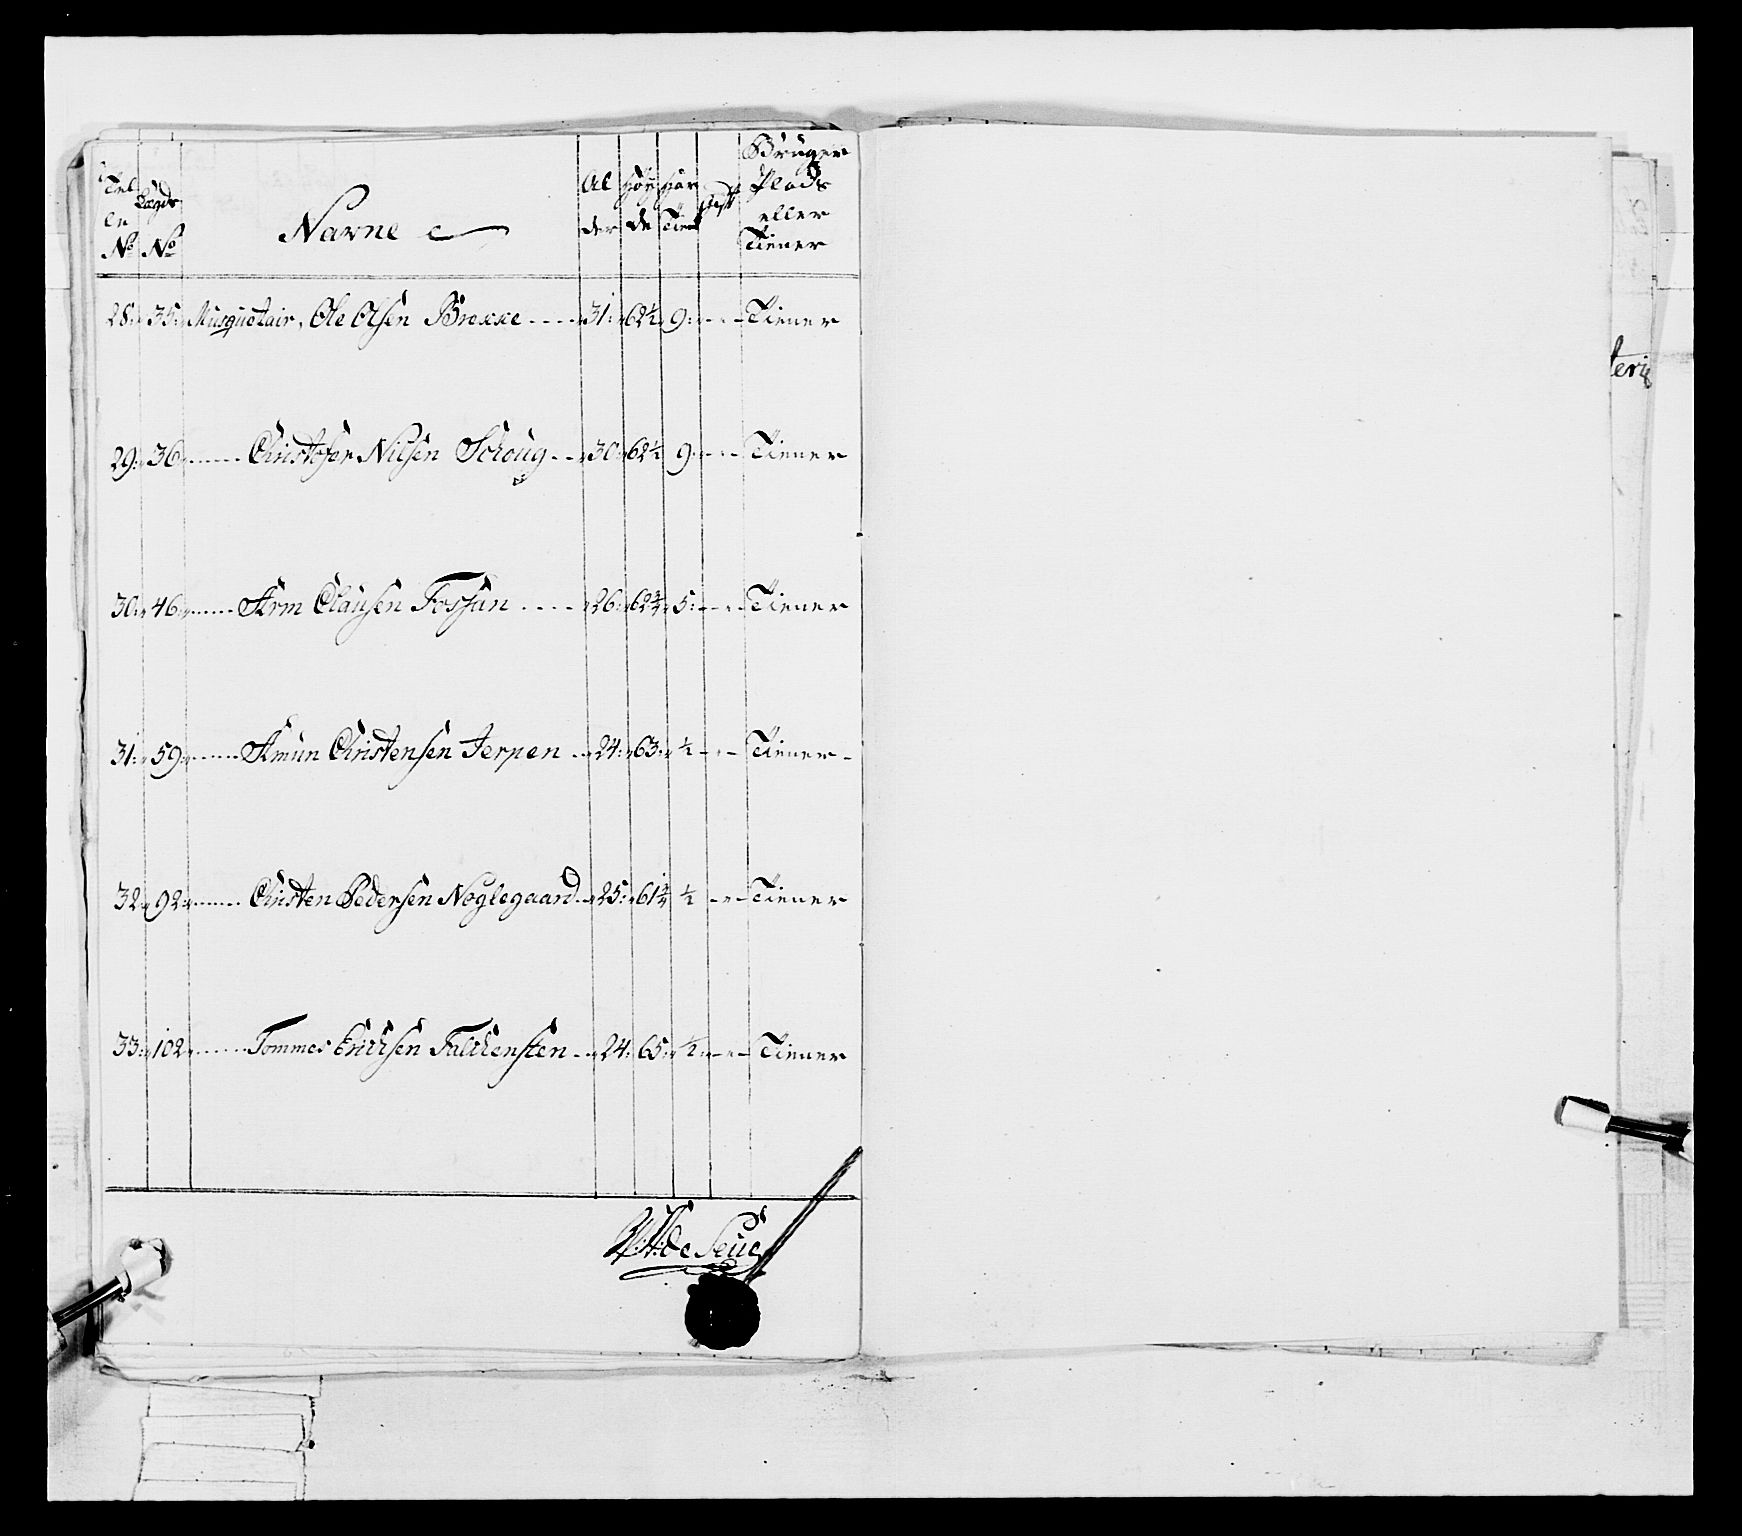 Tel
ler
No
Lægds
No
Navne
Al
der
Høy
de
Har
Tient
Gift
Bruger
Plads
eller
Tiener
28: 35: Musquetair, Ole Olsen Brekke - - - - 31: 62½ 9: - - - Tiener
29: 36: Christofer Nilsen Schoug - - 30: 62½ 9: - - - Tiener
30: 46: Arm Clausen Fossun - - - - 26: 62¾ 5: - - - Tiener
31: 59: Amun Christensen Jerpen - - 24: 63: ½ - - - Tiener -
32: 92: Christen Pedersen Noglegaard - - 25: 61¾ ½ - - - Tiener
33: 102: Tommes Erichsen Falckensten - - 24: 65: ½: - - - Tiener
de Seue